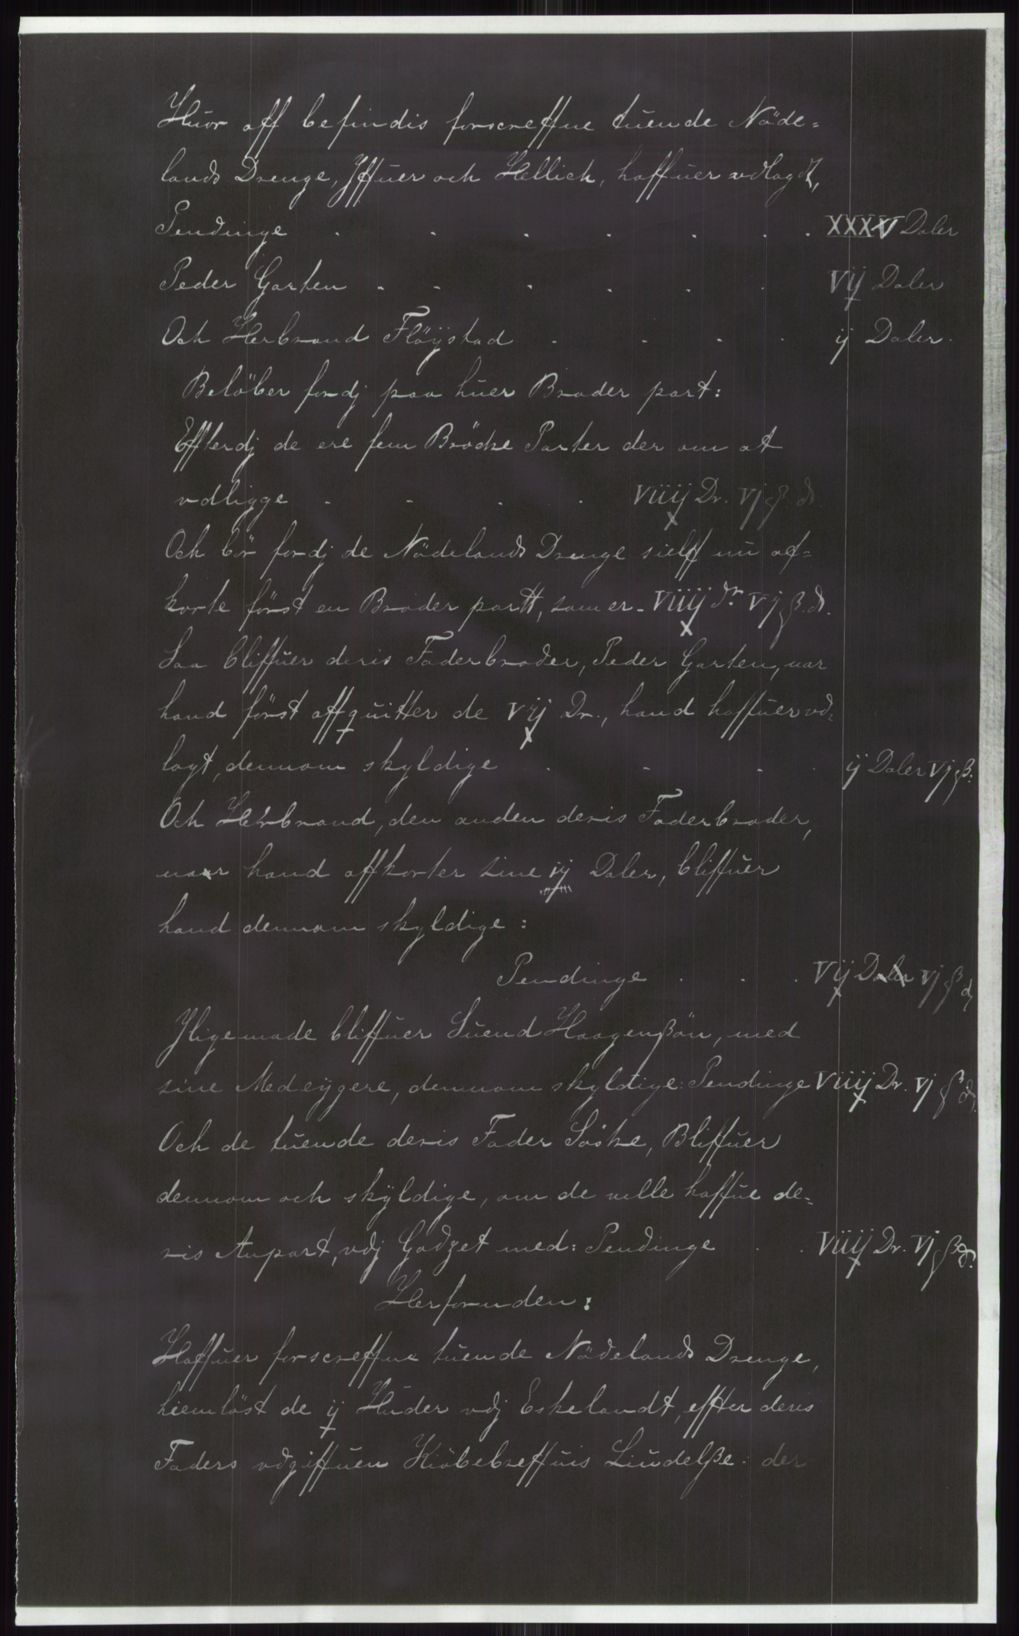 Huor off befindis forscreffne tuende Nöde=
lands Drenge, Jffuer och Hellich, haffuer vdlagdt,
Pendinge . . . . . . . XXXV Daler
Peder Garten . . . . . . vij Daler
Och Herbrand Flöystad . . . . ij Daler.
Belöber fordj paa huer Broder part:
Effterdj de ere fem Brödre Parter der om at
vdligge . . . . viiij Dr. vj ß. d.
Och bör fordj de Nödelands Drenge sielff nu af=
korte först en Broder partt, som er - viiij dr vj ß. d.
Saa bliffuer deris Faderbroder, Peder Garten, nar
hand först affquitter de vij Dr., hand haffuer vd=
lagt, dennom skyldige . . . . ij Daler vj ß.
Och Herbrand, den anden deris Faderbroder,
naar hand affkorter sine ij Daler, bliffuer
hand dennom skyldige:
Pendinge . . . vij Daler vj ß d
Jligemade bliffuer Suend Haagenßön, med
sine Medeÿgere, dennom skyldige: Pendinge viiij Dr. vj ß d.
Och de tuende deris Fader Söstre, Bliffuer
dennom och skÿldige, om de ville haffue de=
ris Anpart, vdj Godzet med: Pendinge . . viiij Dr. vj ß d.
Herforuden:
Haffuer forscreffne tuende Nödelands Drenge,
hiemlöst de ij Huder vdj Eskelandt, effter deris
Faders vdgiffuen Kiöbebreffuis Liudelße: der